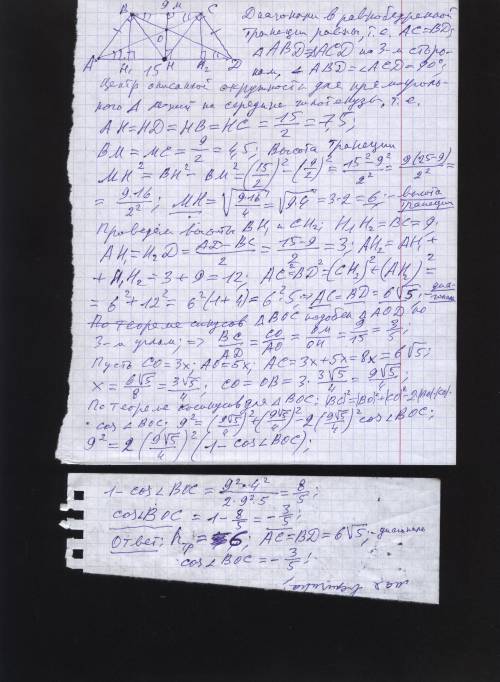 B 9 м C
O
A H₁ 15 H H₂ D
Диагонали в равнобедренной
трапеции равны, т.е. AC=BD;
ΔABD=ΔACD по 3-м сторо-
нам, ∠ABD=∠ACD=90°;
Центр описанной окружности для прямоуголь-
ного Δ лежит на середине гипотенузы, т.е.
AH=HD=HB=HC=15/2=7,5;
BM=MC=9/2=4,5; Высота трапеции
MH²=BH²-BM²=(15/2)²-(9/2)²=(15²-9²)/2²=9(25-9)/2²=
=9·16/2²; MH=√(9·16/4)=√(9·4)=3·2=6; - высота трапеции
Проведем высоты BH₁ и CH₂; H₁H₂=BC=9.
AH₁=H₂D=(AD-BC)/2=(15-9)/2=3; AH₂=AH₁+
+H₁H₂=3+9=12; AC²=BD²=(CH₂)²+(AH₂)²=
=6²+12²=6²(1+4)=6²·5; ⇒ AC=BD=6√5; - диагональ
По теореме синусов ΔBOC подобен ΔAOD по
3-м углам; ⇒ BC/AD=CO/AO=OM/OH=9/15=3/5;
Пусть CO=3x; AO=5x; AC=3x+5x=8x=6√5;
x=6√5/8=3√5/4; CO=OB=3·3√5/4=9√5/4;
По теореме косинусов для ΔBOC: |BC|²=|BO|²+|CO|²-2|BO|·|CO|·
·cos∠BOC; 9²=(9√5/4)²+(9√5/4)²-2(9√5/4)²cos∠BOC;
9²=2(9√5/4)²(1-cos∠BOC);
1-cos∠BOC=9²·4²/2·9²·5=8/5;
cos∠BOC=1-8/5=-3/5;
Ответ: hтр=6; AC=BD=6√5; - диагональ
cos∠BOC=-3/5;